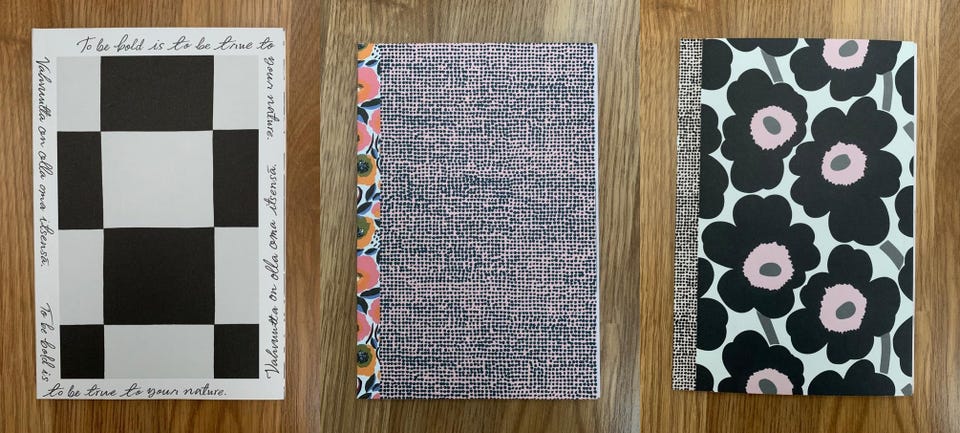 To be bold is to be true to
your nature.
Vahvuutta on olla oma itsensä.
Vahvuutta on olla oma itsensä.
To be bold is
to be true to your nature.